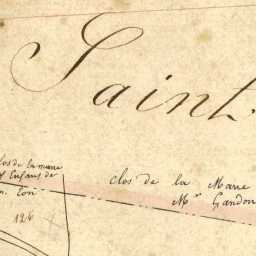 Saint
clos de la mare
Enfans de
clos de la Mare
Mr Gandon
126